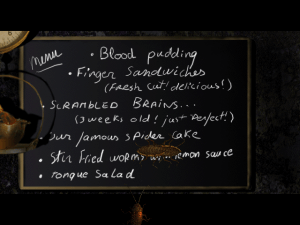 Menu
• Blood pudding
• Finger Sandwiches
(Fresh Cut! delicious!)
• SCRAMBLED BRAINS...
(3 weeks old! just Perfect!)
• Our famous SPider Cake
• Stir Fried worms lemon sauce
• Tongue Salad